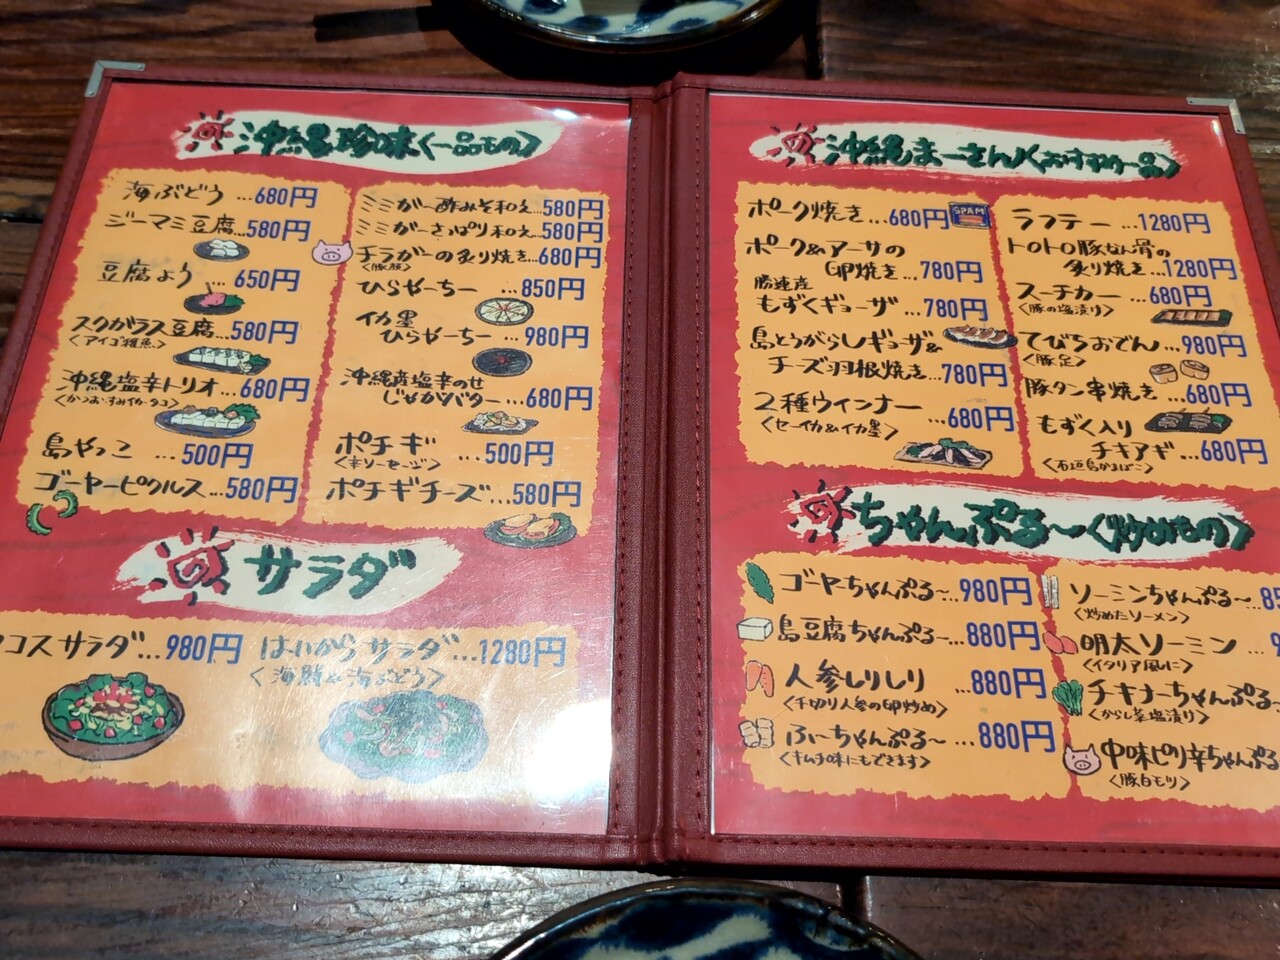 沖縄珍味〈一品もの〉
海ぶどう…680円
ジーマミ豆腐…580円
豆腐よう…650円
スクガラス豆腐…580円
〈アイゴ稚魚〉
沖縄塩辛トリオ…680円
〈かつお・すみイカ・タコ〉
島やっこ…500円
ゴーヤーピクルス…580円
ミミガー酢みそ和え…580円
ミミガーさっぱり和え…580円
チラガーの炙り焼き…680円
ひらやーちー…850円
イカ墨
ひらやーちー…980円
沖縄産塩辛のせ
じゃがバター…680円
ポチギ…500円
〈辛ソーセージ〉
ポチギチーズ…580円
サラダ
コスサラダ…980円
はいからサラダ…1280円
〈海鮮&海ぶどう〉
沖縄まーさん〈おすすめ一品〉
ポーク焼き…680円
SPAM
ポーク&アーサの
卵焼き…780円
勝連産
もずくギョーザ…780円
島とうがらしギョーザ&
チーズ羽根焼き…780円
2種ウインナー…680円
〈セーイカ&イカ墨〉
ラフテー…1280円
トロトロ豚なん骨の
炙り焼き…1280円
スーチカー…680円
〈豚の塩漬り〉
てびちおでん…980円
〈豚足〉
豚タン串焼き…680円
もずく入り
チキアギ…680円
〈石垣島かまぼこ〉
ちゃんぷる〜〈炒めもの〉
ゴーヤちゃんぷる〜…980円
島豆腐ちゃんぷる〜…880円
人参しりしり…880円
〈千切り人参の卵炒め〉
ふぅーちゃんぷる〜…880円
〈キムチ味にもできます〉
ソーミンちゃんぷる〜…85
〈炒めたソーメン〉
明太ソーミン…9
〈イタリア風に〉
チキナーちゃんぷる
〈からし菜塩漬り〉
中味ピリ辛ちゃんぷる
〈豚白モツ〉